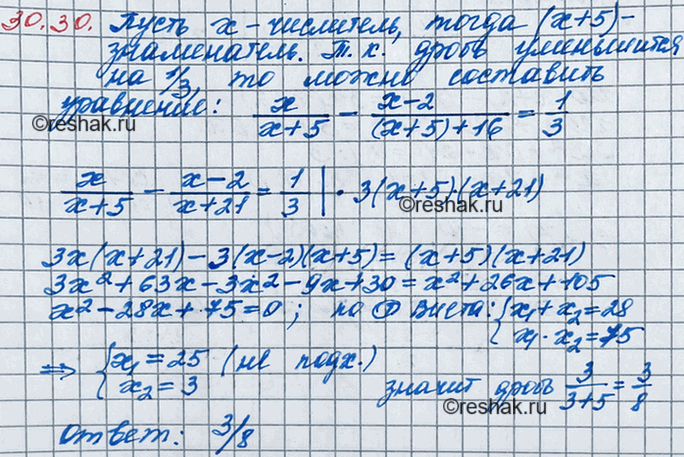 30.30. Пусть x - числитель, тогда (x+5) -
знаменатель. Т.к. дробь уменьшится
на 1/3, то можно составить
уравнение: x/(x+5) - (x-2)/((x+5)+16) = 1/3
©reshak.ru
x/(x+5) - (x-2)/(x+21) = 1/3 | · 3(x+5)·(x+21)
©reshak.ru
3x(x+21) - 3(x-2)(x+5) = (x+5)(x+21)
3x² + 63x - 3x² - 9x + 30 = x² + 26x + 105
x² - 28x + 75 = 0; по Ⓣ Виета: { x₁ + x₂ = 28
x₁ · x₂ = 75
⇒ { x₁ = 25 (не подх.)
x₂ = 3
значит дробь 3/(3+5) = 3/8
©reshak.ru
Ответ: 3/8